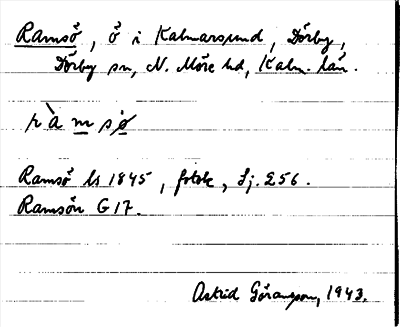 Ramsö, ö i Kalmarsund, Dörby,
Dörby sn, N. Möre hd, Kalm. län.
ràmsø
Ramsö ls 1845, fotok, Lj. 256.
Ramsön G 17.
Astrid Göransson, 1943.